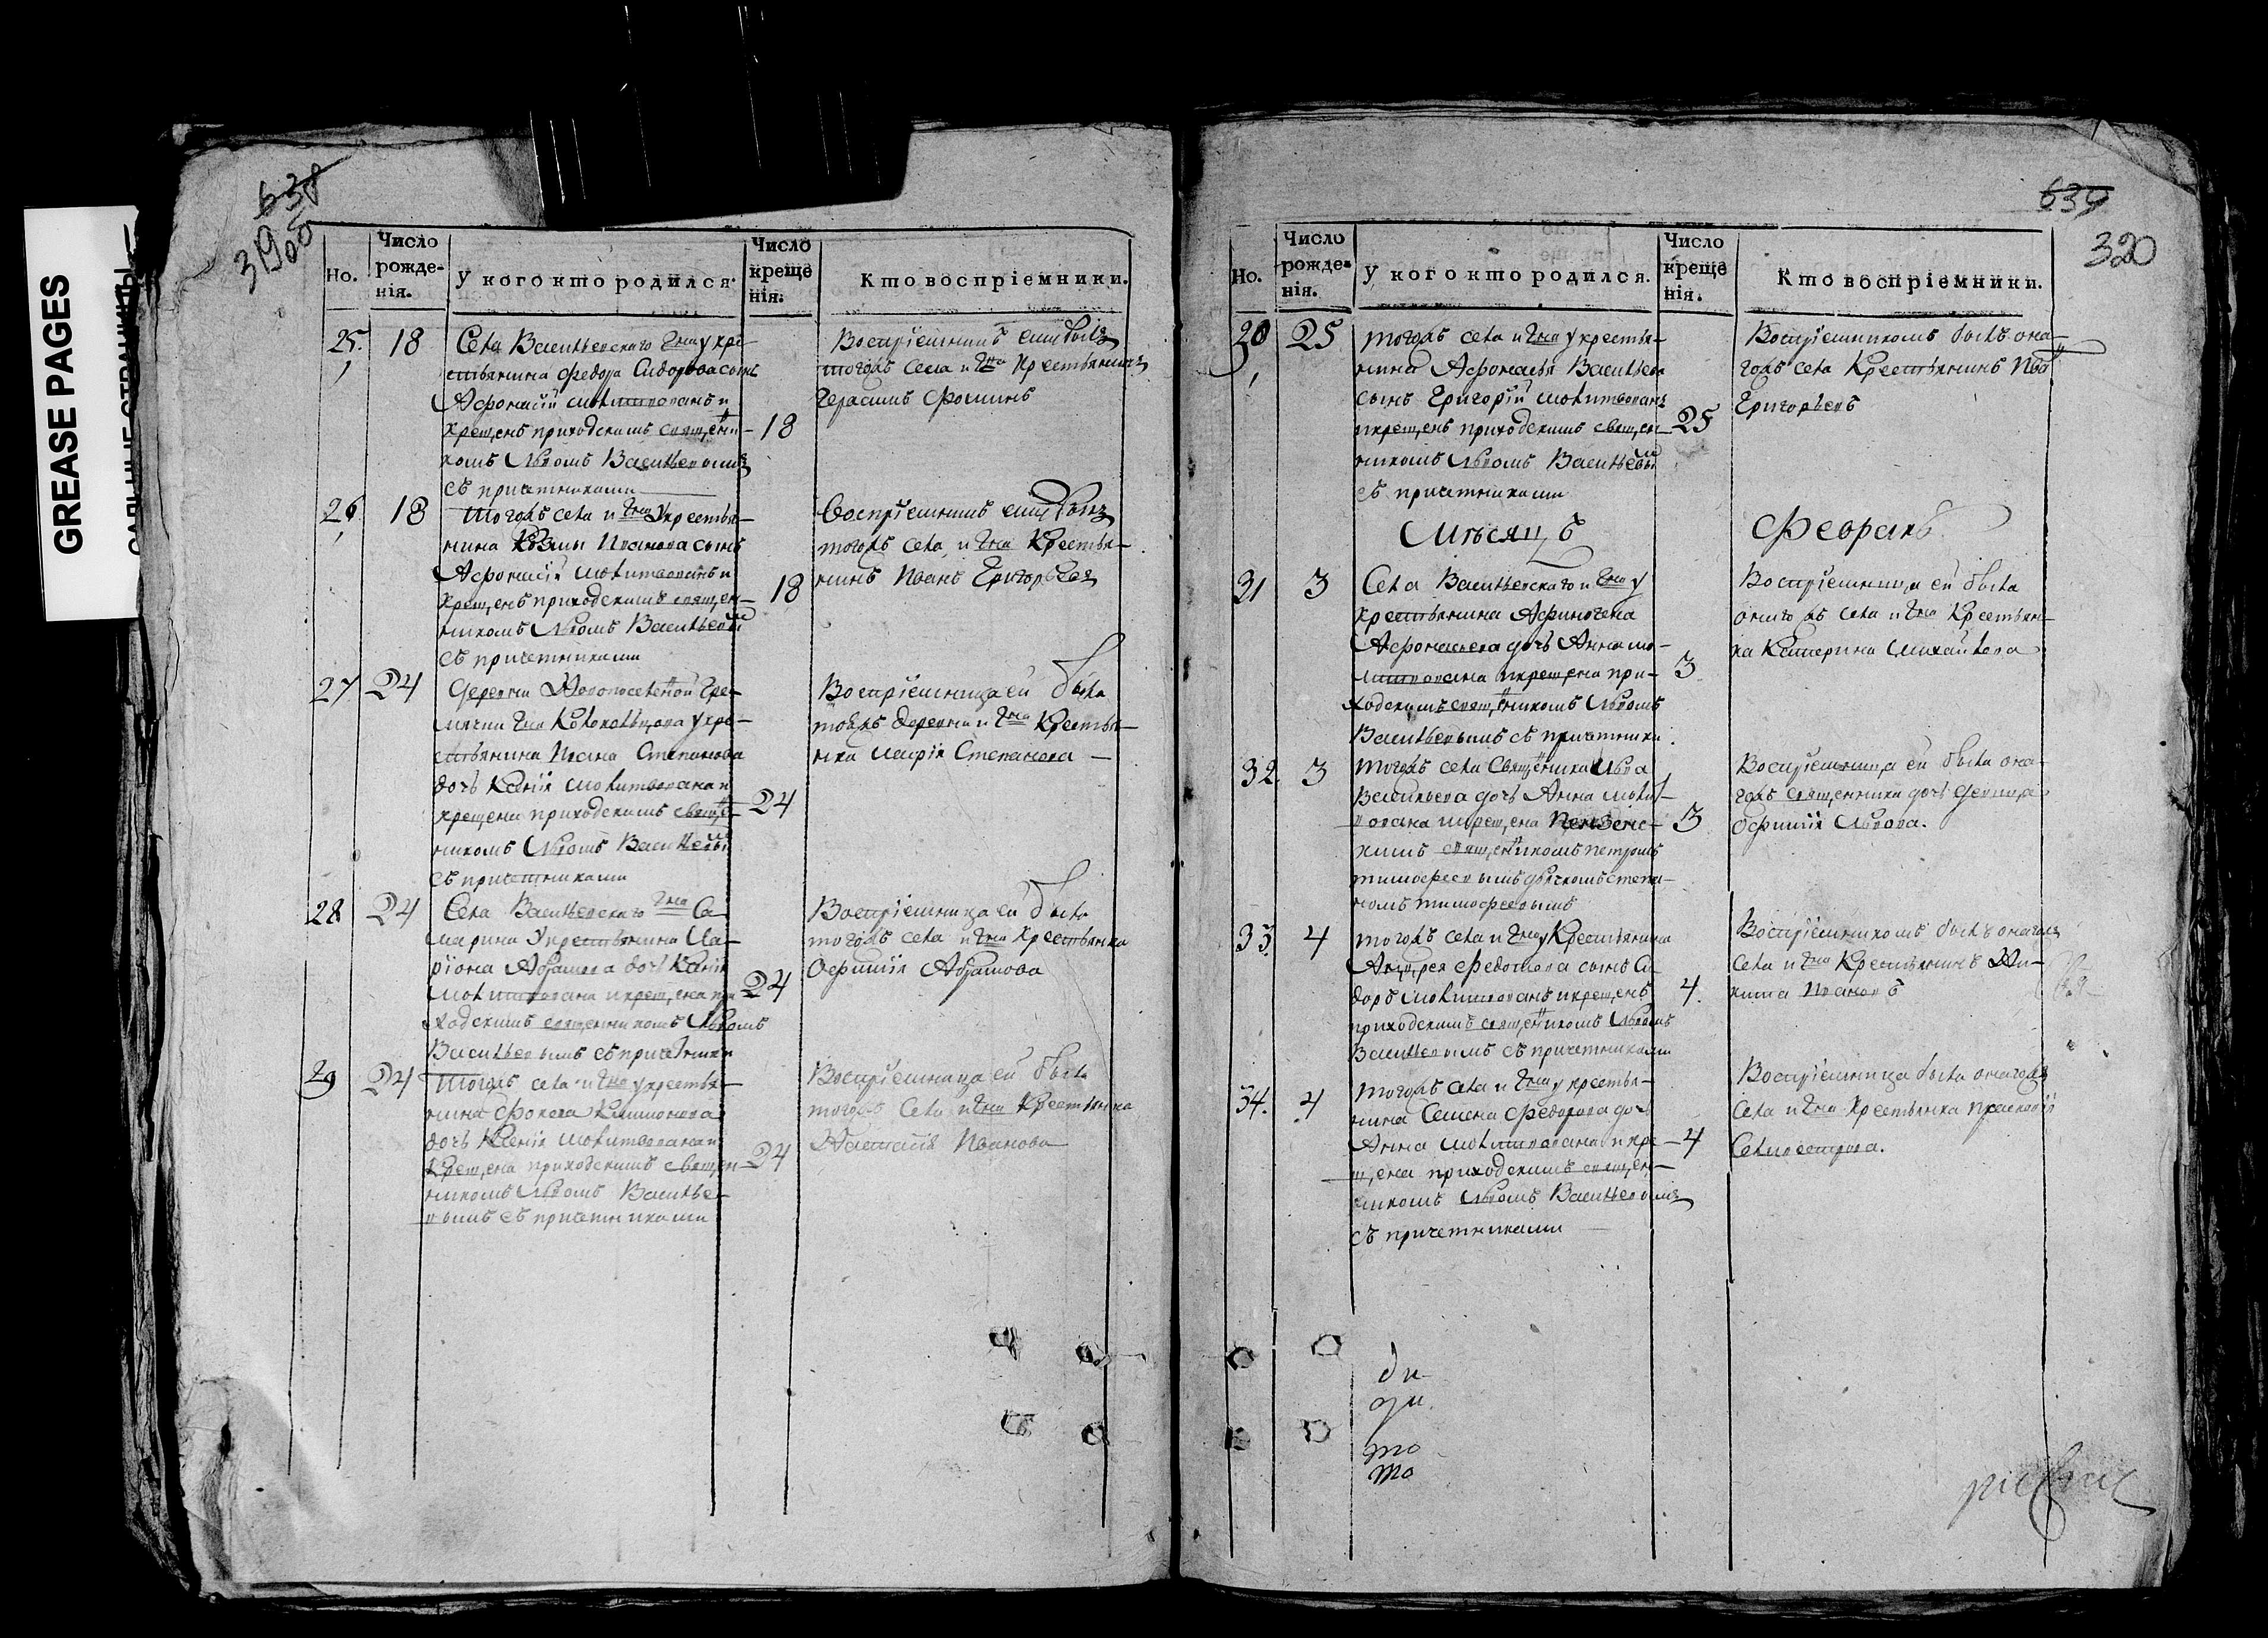 GREASE PAGES
638
319 об
Но.
Число рожденія.
У кого кто родился.
Число крещенія.
Кто воспріемники.
25. 18
Села Васильевскаго тна у кре-
стьянина Федора Сидорова сынъ
Афонасій молитвованъ и
крещенъ приходскимъ свящѣни-
комъ Львомъ Васильевымъ
съ причетниками
18
Воспріемникъ ему былъ
тогожъ села и тна Крестьянинъ
Герасимъ Фоминъ
26 18
Тогожъ села и тна у крестья-
нина Козмы Иванова сынъ
Афонасій молитвованъ и
крещенъ приходскимъ священ-
никомъ Львомъ Васильевы
съ причетниками
18
Воспріемникъ ему былъ
тогожъ села и тна Крестья-
нинъ Иванъ Григорьевъ
27 24
Деревни Новопоселеной Гре-
мячки тна Колокольцова у кре-
стьянина Ивана Степанова
дочь Ксенія молитвована и
крещена приходскимъ свяще-
никомъ Львомъ Васильевы
съ причетниками
24
Воспріемница ей была
тояжъ деревни и тна Крестья-
нка Марія Степанова
28 24
Села Васильевскаго тна Са-
марина У крестьянина Ила-
ріона Абрамова дочь Ксенія
молитвована и крещена при-
ходскимъ священникомъ Львомъ
Васильевымъ съ причетники
24
Воспріемница ей была
тогожъ села и тна крестьянка
Офимія Абрамова
29 24
Тогожъ села и тна у крестья-
нина Фокеа
дочь Ксенія молитвована и
крещена приходскимъ священ-
никомъ Львомъ Василье-
вымъ съ причетниками
24
Воспріемница ей была
тогожъ Села и тна Крестьянка
Настасія Иванова
639
320
Но.
Число рожденія.
У кого кто родился.
Число крещенія.
Кто воспріемники.
30 25
тогожъ села и тна у крестья-
нина Афонасья Васильева
сынъ Григорій молитвованъ
и крещенъ приходскимъ священ-
никомъ Львомъ Васильевы
съ причетниками
25
Воспріемникомъ былъ она-
гожъ села Крестьянинъ Ива
Григорьевъ
Мѣсяцъ Февраль
31 3
Села Васильевскаго и тна у
крестьянина Афиногена
Афонасьева дочь Анна мо-
литвована и крещена при-
ходскимъ священикомъ Львомъ
Васильевымъ съ причетники
3
Воспріемница ей была
оногожъ села и тна Крестьян-
ка Катерина Михайлова
32. 3
тогожъ села Священика Льва
Васильева дочь Анна молит-
вована и крещена Пензенс-
кимъ священикомъ петромъ
тимофеевымъ дьячкомъ степа-
номъ тимофеевымъ
3
Воспріемница ей была она-
гожъ священника дочь девица
Офимія Львова.
33. 4
тогожъ села и тна у Крестьянина
Андрея Федотова сынъ Си-
доръ молитвованъ и крещенъ
приходскимъ священикомъ Львомъ
Васильевымъ съ причетниками
4.
Воспріемникомъ былъ онагожъ
Села и тна Крестьянинъ Ни-
кита Ивановъ
34. 4
тогожъ села и тна у крестья-
нина Семена Федорова дочь
Анна молитвована и кре-
щена приходскимъ священ-
никомъ Львомъ Васильевымъ
съ причетниками
4
Воспріемница была онагожъ
села и тна Крестьянка прасковья
Селиверстрова.
то
то